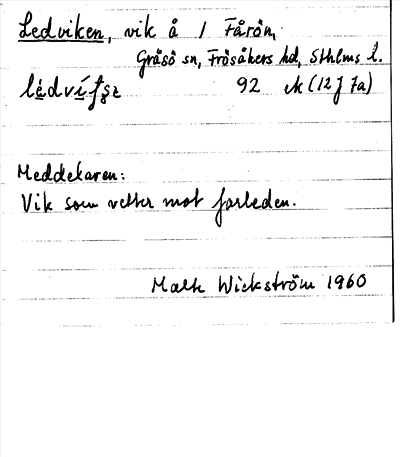 Ledviken, vik å 1 Fårön,
Gräsö sn, Frösåkers hd, Sthlms l.
92 ek (12J 7a)
Meddelaren:
Vik som vetter mot farleden.
Wickström 1960